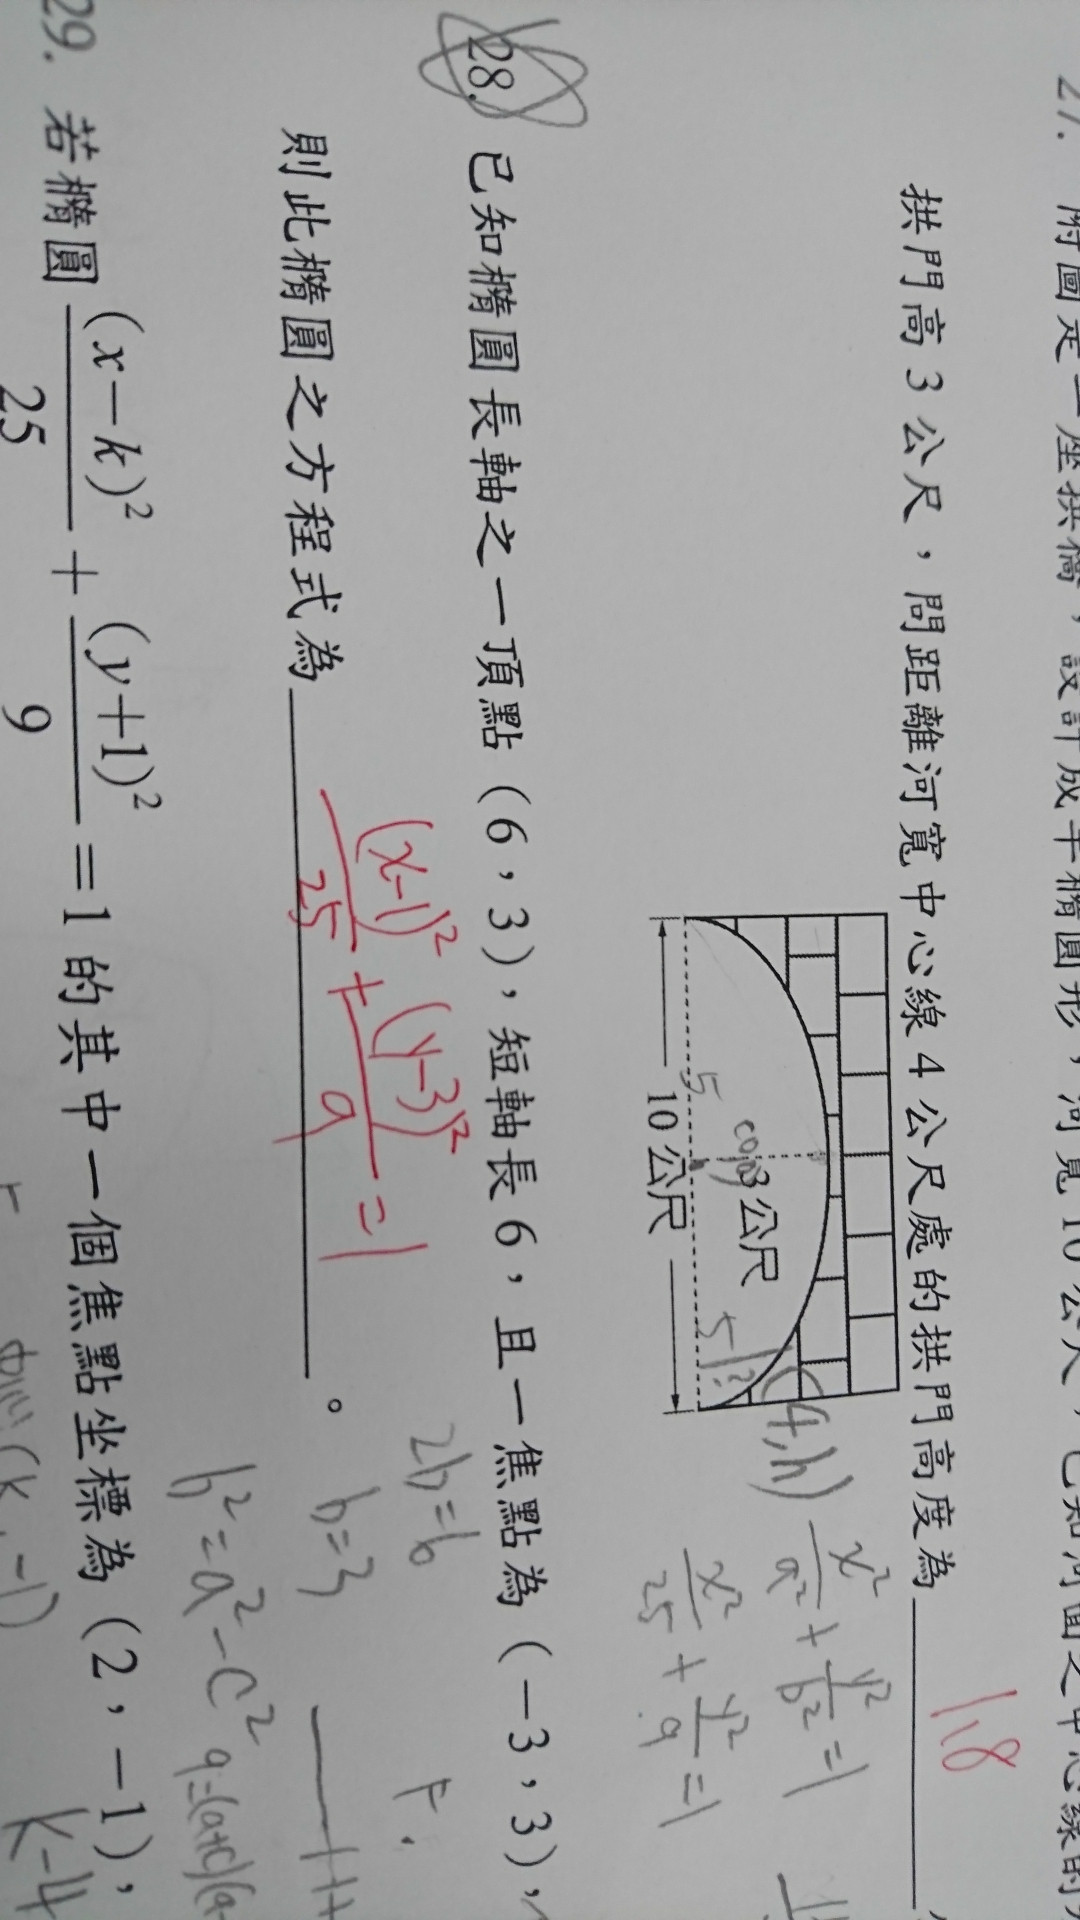 27. 附圖是一座拱橋，設計成半橢圓形，河寬 10 公尺，已知河面之中心線的
拱門高 3 公尺，問距離河寬中心線 4 公尺處的拱門高度為
1.8
3公尺
10 公尺
5
5
(4,h)
x²/a² + y²/b² = 1
x²/25 + y²/9 = 1
28. 已知橢圓長軸之一頂點（6，3），短軸長 6，且一焦點為（－3，3），
2b=6
則此橢圓之方程式為 。
(x-1)²/25 + (y-3)²/9 = 1
b=3
b²=a²-c²
9=(a+c)(a-
29. 若橢圓 (x－k)²/25 + (y＋1)²/9 ＝1 的其中一個焦點坐標為（2，－1），
(k,-1)
k-4